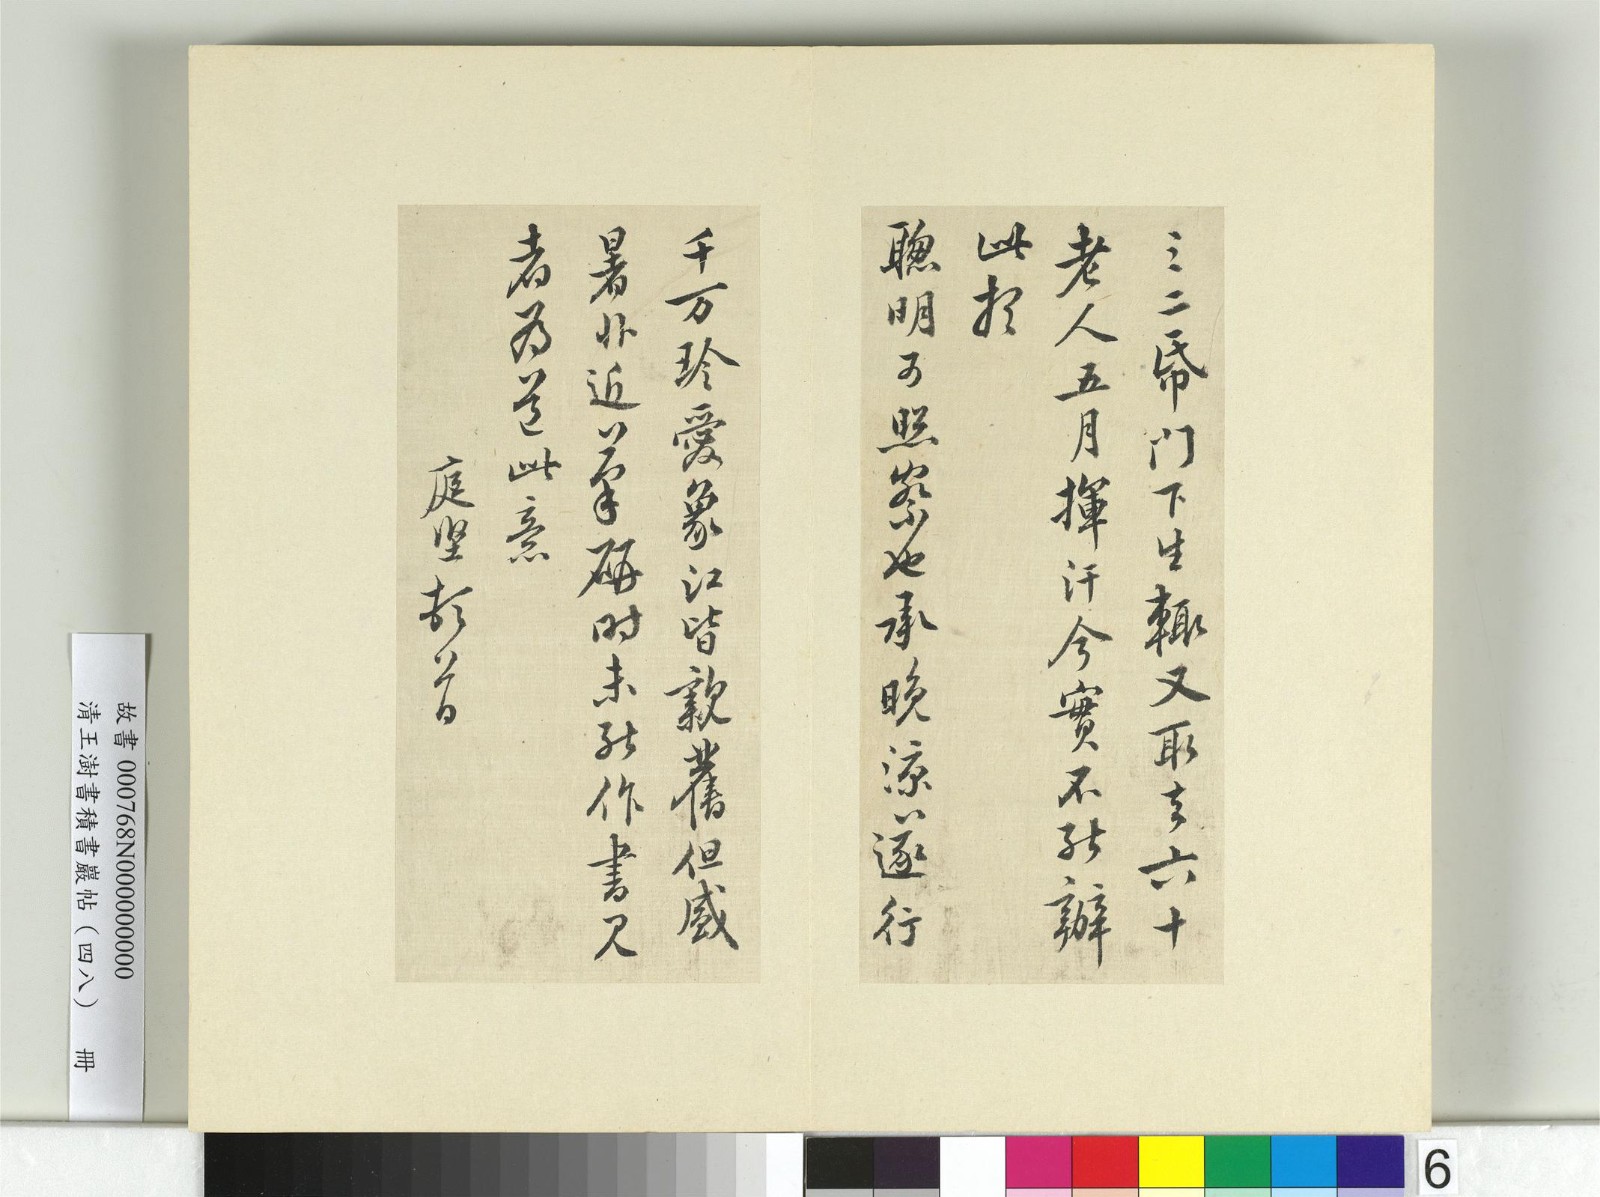 三二昏門下生輒又取去六十
老人五月揮汗今實不能辦
此想
聰明可照察也承晚涼遂行
千万珍愛象江皆親舊但盛
暑非近筆研時未能作書見
者為道此意
庭堅頓首
故書 000768N000000000
清王澍書積書巖帖(四八) 冊
6